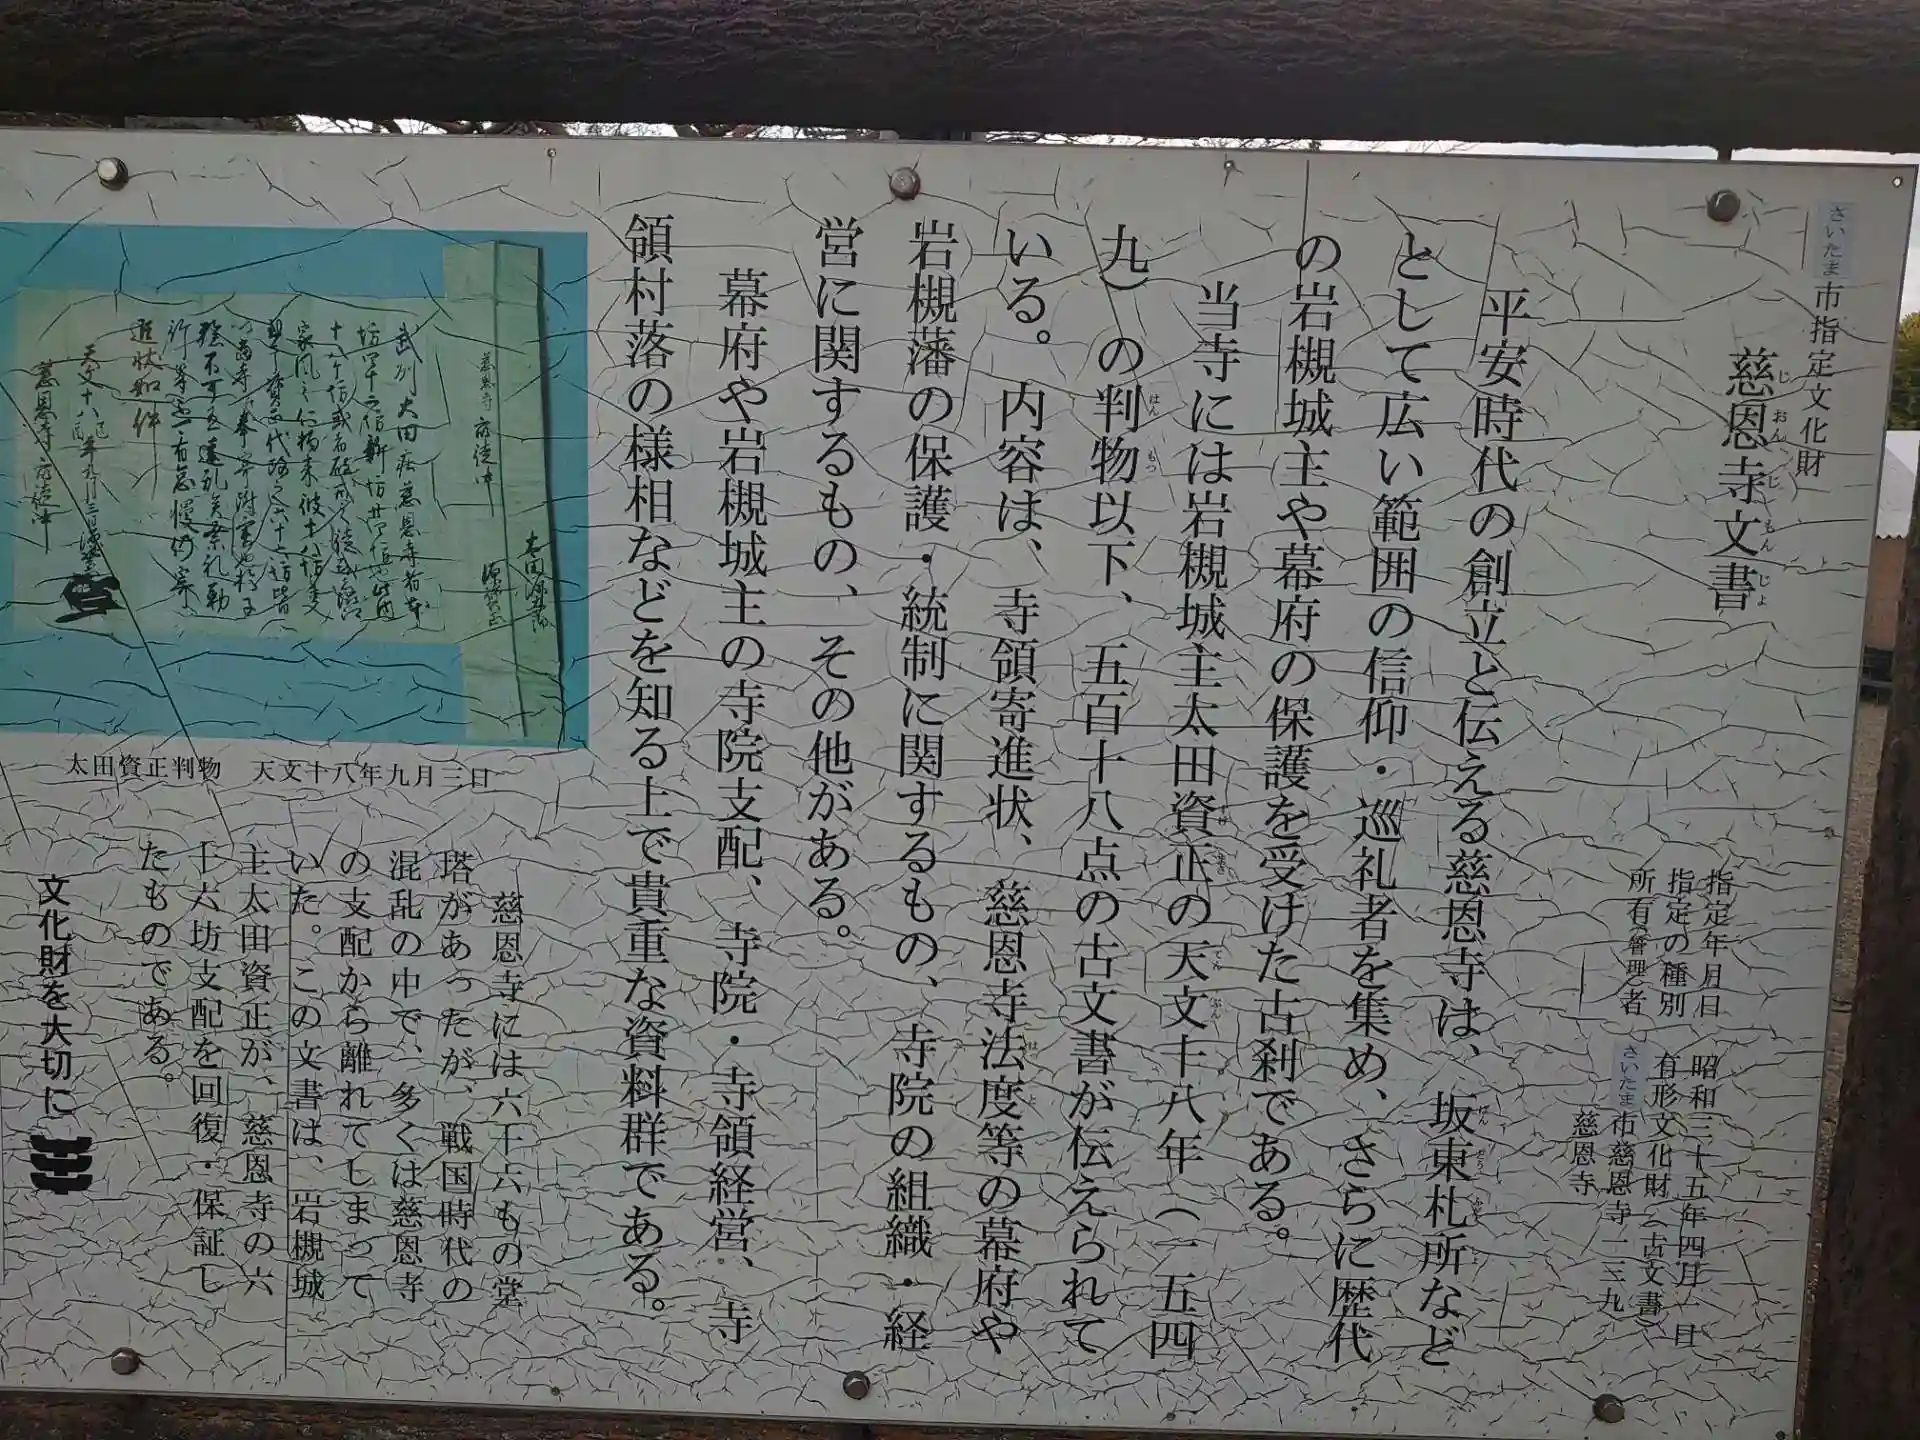 さいたま市指定文化財
慈恩寺文書
じおんじもんじょ
指定年月日　昭和三十五年四月一日
指定の種別　有形文化財（古文書）
所有（管理）者　さいたま市慈恩寺一三九
慈恩寺
平安時代の創立と伝える慈恩寺は、坂東札所など
として広い範囲の信仰・巡礼者を集め、さらに歴代
の岩槻城主や幕府の保護を受けた古刹である。
当寺には岩槻城主太田資正の天文十八年（一五四
九）の判物以下、五百十八点の古文書が伝えられて
いる。内容は、寺領寄進状、慈恩寺法度等の幕府や
岩槻藩の保護・統制に関するもの、寺院の組織・経
営に関するもの、その他がある。
幕府や岩槻城主の寺院支配、寺院・寺領経営、寺
領村落の様相などを知る上で貴重な資料群である。
太田資正判物　天文十八年九月三日
慈恩寺には六十六もの堂
塔があったが、戦国時代の
混乱の中で、多くは慈恩寺
の支配から離れてしまって
いた。この文書は、岩槻城
主太田資正が、慈恩寺の六
十六坊支配を回復・保証し
たものである。
文化財を大切に